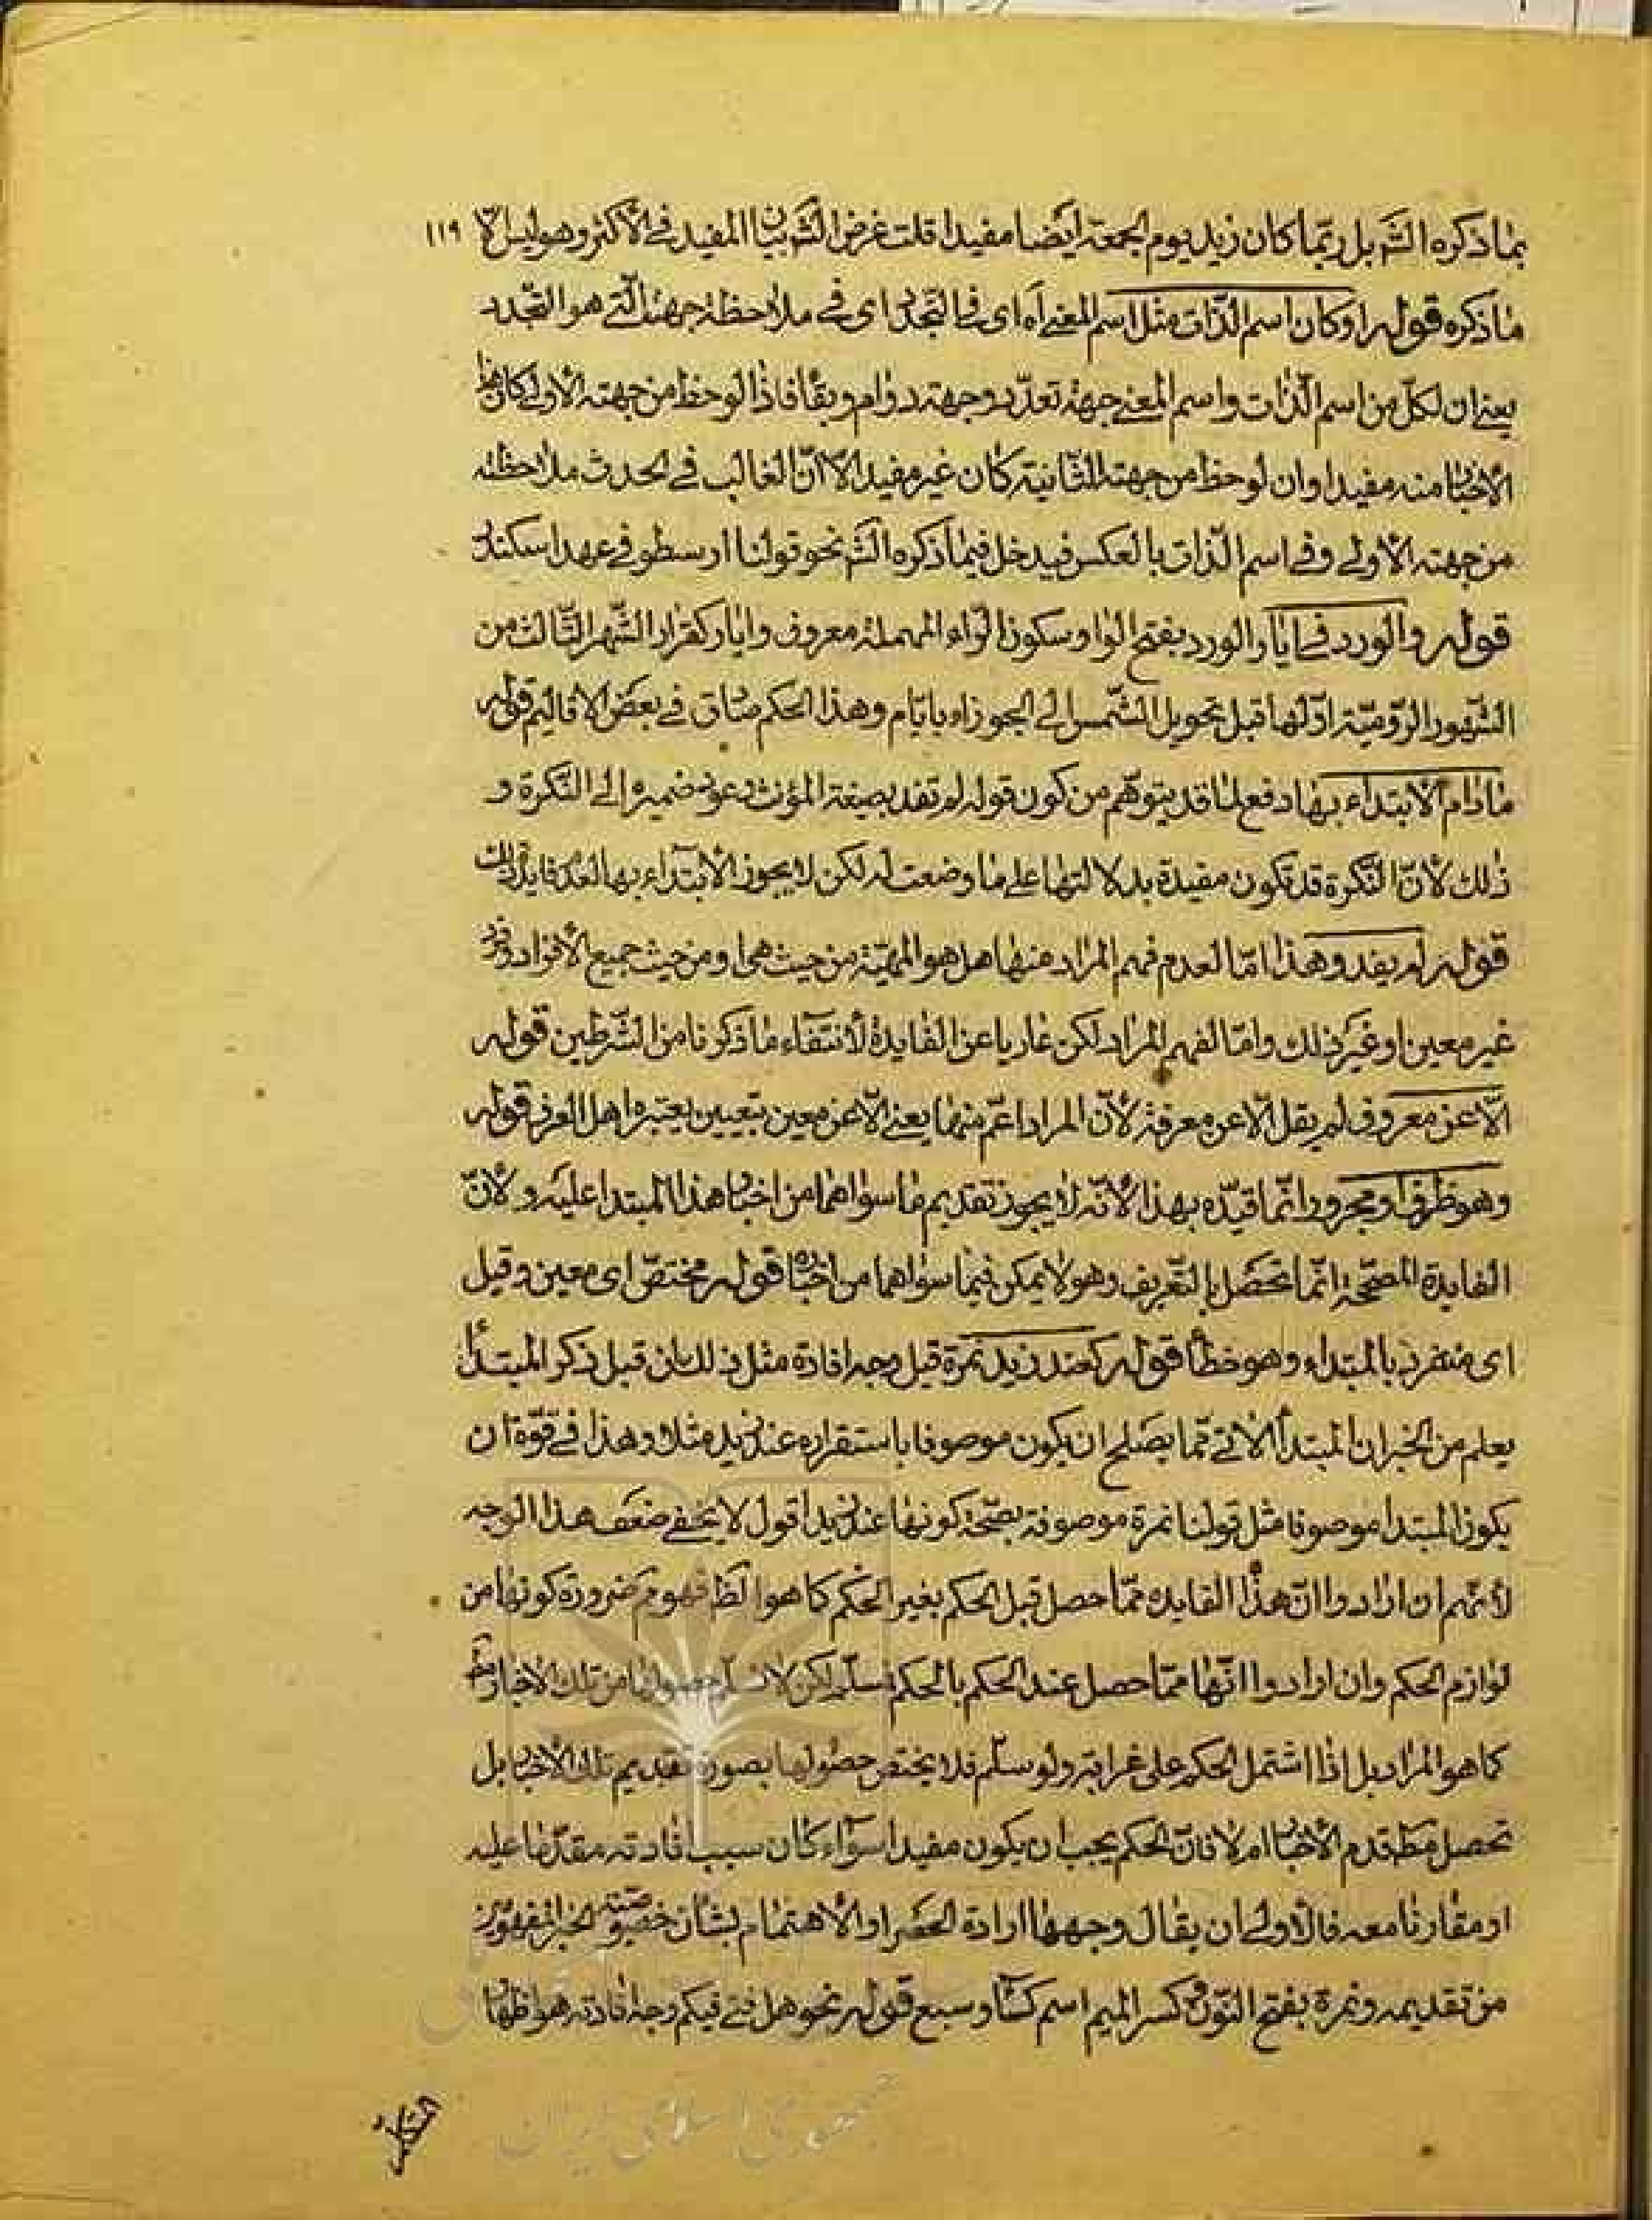 بما ذكره الش بل ربّما كان زيد يوم الجمعة ايضا مفيدا قلت غرض الش بيان المفيد فى الأكثر وهو ليس الّا ١١٩
ما ذكره قوله او كان اسم الذّات مثل اسم المعنى اه اى فى التجدّد اى فى ملاحظة جهته الّتى هو التجدد
يعنى ان لكلّ من اسم الذّات واسم المعنى جهة تعدّد وجهة دوام وبقاء فاذا لوحظ من جهته الأولى كان
الأخبار منه مفيدا وان لوحظ من جهته الثّانية كان غير مفيد الّا انّ الغالب فى الحدث ملاحظته
من جهته الأولى وفى اسم الذّات بالعكس فيدخل فيما ذكره الش نحو قولنا ارسطو فى عهد اسكندر
قوله والورد فى ايار والورد بفتح الواو وسكون الرّاء المهملة معروف وايار كقرار الشّهر الثّالث من
الشّهور الرّوميّة اوّلها قبل تحويل الشّمس الى الجوزاء بايّام وهذا الحكم صادق فى بعض الاقاليم قوله
مادام الابتداء بها دفع لما قد يتوهّم من كون قوله لم تفد بصيغة المؤنث وعود ضميره الى النّكرة و
ذلك لأنّ النّكرة قد تكون مفيدة بدلالتها على ما وضعت له لكن لا يجوز الأبتداء بها لعدم فايدة
قوله لم يفد وهذا امّا لعدم فهم المراد منها هل هو المهيّة من حيث هى او من حيث جميع الأفراد او فرد
غير معين او غير ذلك وامّا لفهم المراد لكن عاريا عن الفايدة لأنتفاء ما ذكرنا من الشّرطين قوله
الّا عن معروف لم يقل الّا عن معرفة لأنّ المراد اعمّ منها يعنى الّا عن معين بتعيين يعتبره اهل العرف قوله
وهو ظرف او مجرور انّما قيّده بهذا لأنّه لا يجوز تقديم ما سواهما من اخبار هذا المبتدا عليه ولأنّ
الفايدة المصحّحة انّما تحصل بالتّعريف وهو لا يمكن فيما سواهما من اخباره قوله مختصّ اى معين وقيل
اى منفرد بالمبتداء وهو خطأ قوله كعند زيد نمرة قيل وجه افادة مثل ذلك ان قبل ذكر المبتدأ
يعلم من الخبر ان المبتدأ الأتى ممّا يصلح ان يكون موصوفا باستقراره عند زيد مثلا وهذا فى قوّة ان
يكون المبتدا موصوفا مثل قولنا نمرة موصوفة بصحّة كونها عند زيد اقول لا يخفى ضعف هذا الوجه
لأنّهم ان ارادوا انّ هذا الفايده ممّا حصل قبل الحكم بغير الحكم كما هو الظ فهو م ضرورة كونها من
لوازم الحكم وان ارادوا انّها ممّا حصل عند الحكم بالحكم فسلّم لكن لا نسلّم حصولها من تلك الأخبار
كما هو المراد بل اذا اشتمل الحكم على غرابة ولو سلّم فلا يختص حصولها بصورة تقديم تلك الأخبار بل
تحصل مط قدم الأخبار ام لا فانّ الحكم يجب ان يكون مفيدا سوآء كان سبب افادته مقدّما عليه
او مقارنا معه فالأولى ان يقال وجهها ارادة الحصر او الأهتمام بشأن خصوصيّة الخبر
من تقديمه ونمرة بفتح النّون وكسر الميم اسم كساء وسبع قوله نحو هل فتى فيكم وجه افادته هو اظهار